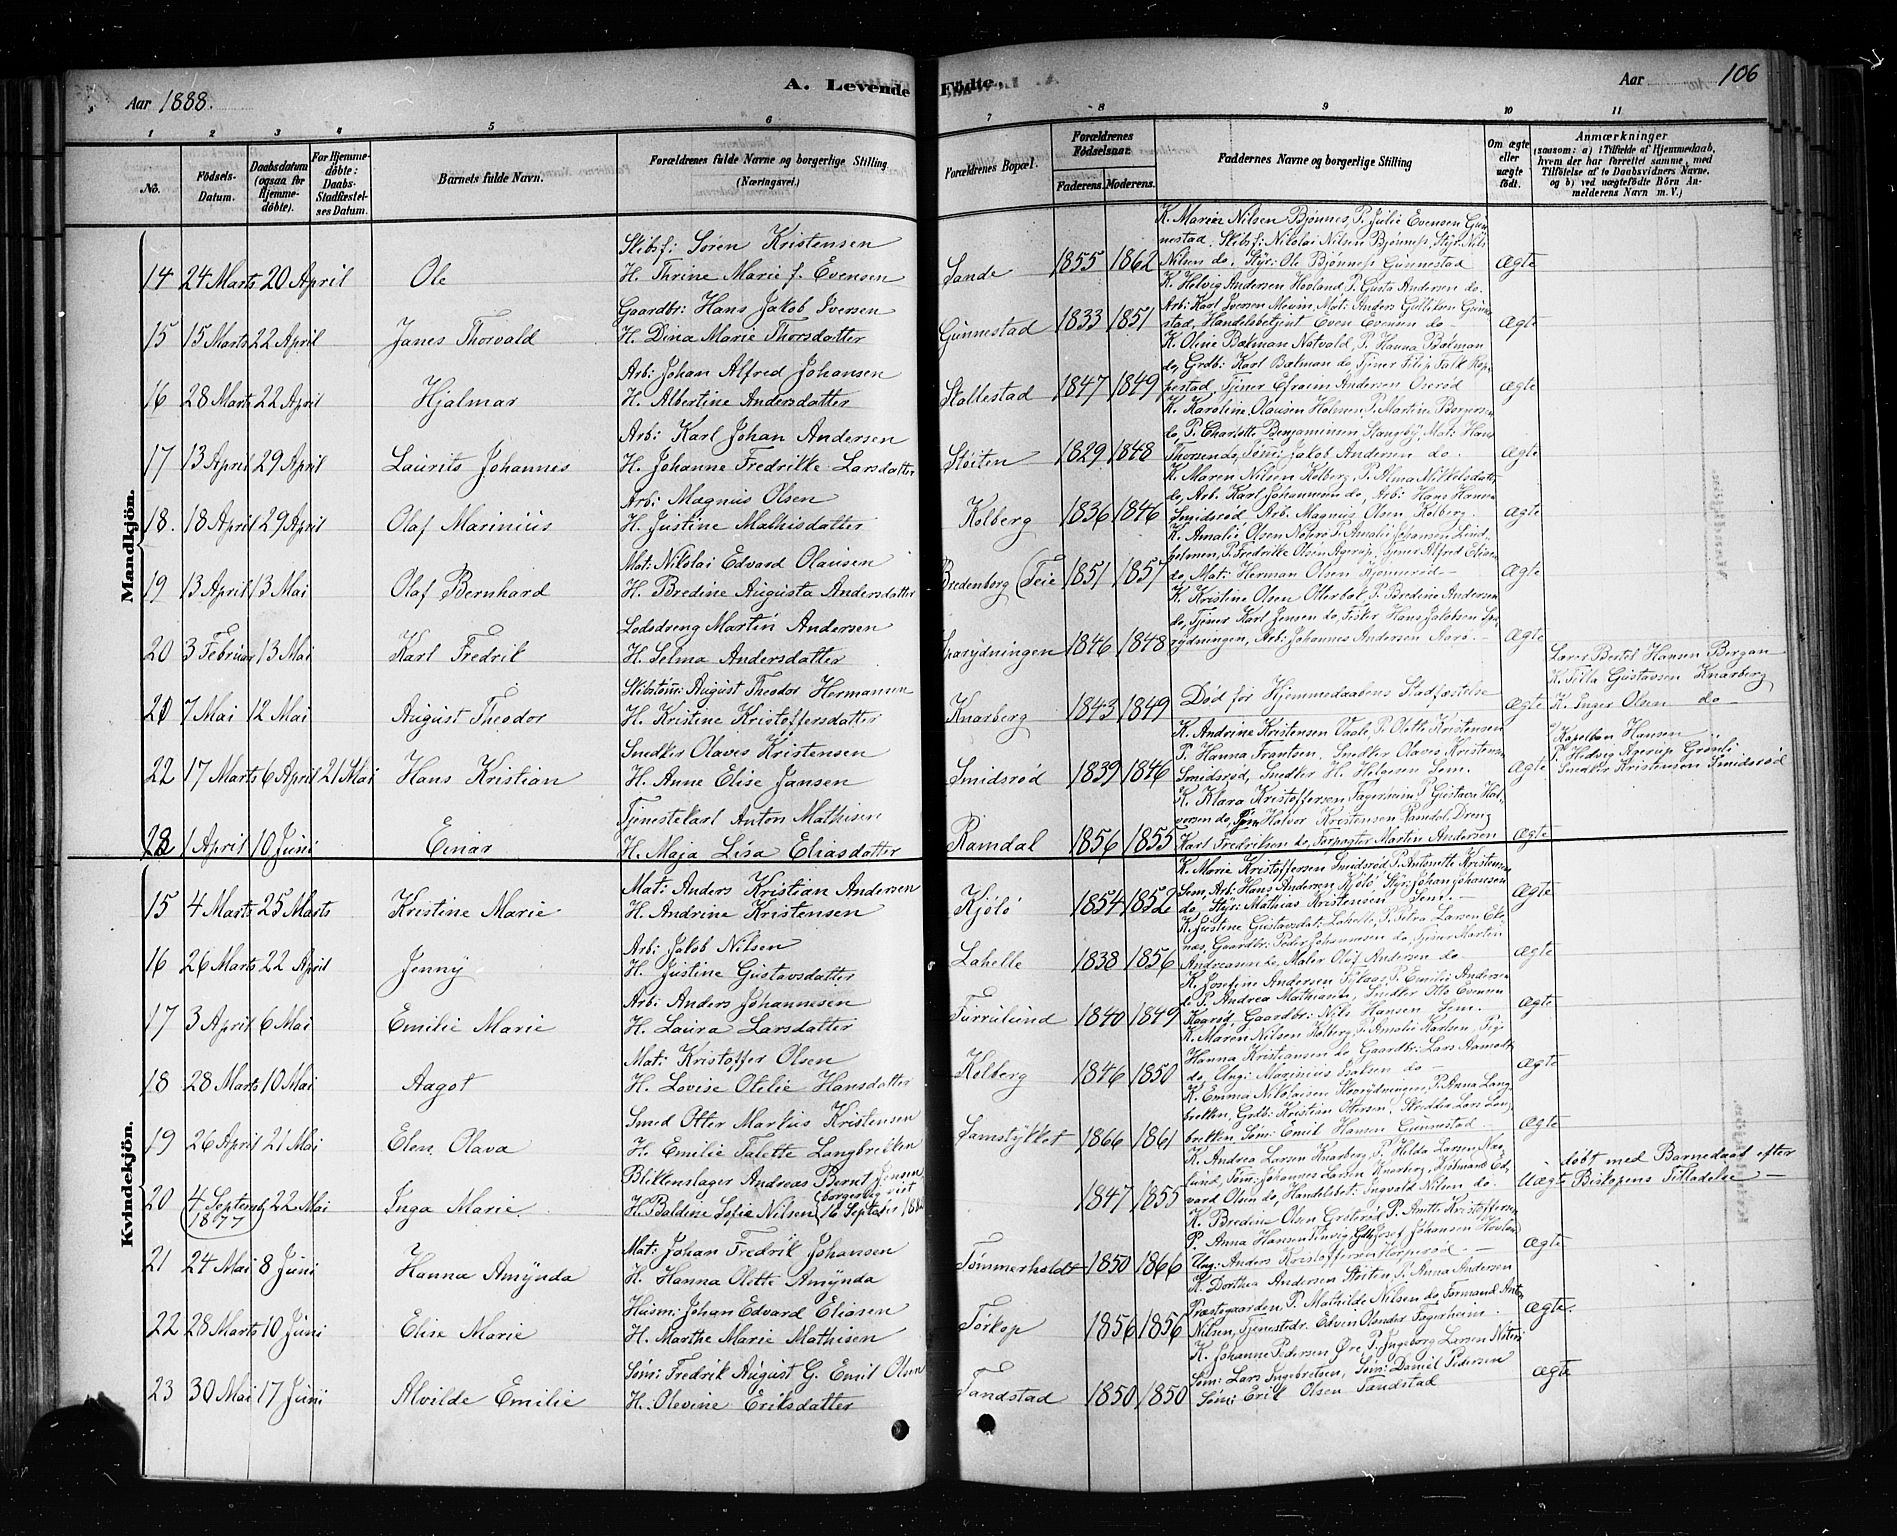 Aar 1888.
A. Levende Födte.
Aar 106
1 2 3 4 5 6 7 8 9 10 11
No.
Födsels-Datum.
Daabsdatum (ogsaa for Hjemme-döbte).
For Hjemme-döbte: Daabs-Stadfæstel-ses Datum.
Barnets fulde Navn.
Forældrenes fulde Navne og borgerlige Stilling (Næringsvei.)
Forældrenes Bopæl.
Forældrenes Födselsaar.
Faderens. Moderens.
Faddernes Navne og borgerlige Stilling
Om ægte eller uægte födt.
Anmærkninger
(saasom: a) i Tilfælde af Hjemmedaab,
hvem der har forrettet samme, med
Tilföielse af to Daabsvidners Navne,
og b) ved uægtefödte Börn An-
melderens Navn m. V.)
Mandkjön.
Skibsf: Søren Kristensen
14 24 Marts 20 April Ole H. Thrine Marie f. Evensen Sande 1855 1862 Ægte
K. Maren Nilsen Bjønnes, P. Julie Evensen Gün-
nestad, Skibsf: Nikolai Nilsen Bjønnes, Styr: Nils
Nilsen do, Styr: Ole Bjønnes Günnestad
Gaardbr: Hans Jakob Iversen
15 15 Marts 22 April Janes Thorvald H. Dina Marie Thorsdatter Günnestad 1833 1851 Ægte
K. Helvig Andersen Hovland P. Gusta Andersen do.
stad, Handelsbetjent Even Evensen do
Arb: Johan Alfred Johansen
16 28 Marts 22 April Hjalmar H. Albertine Andersdatter Skallestad 1847 1849 Ægte
K. Oline Bakman Natvald, P. Hanna Bakman
pestad, Tjener Efraim Andersen
Arb: Karl Johan Andersen
17 13 April 29 April Laurits Johannes H. Johanne Fredrikke Larsdatter Støiten 1829 1848 Ægte
K. Karoline Olausen Holmen P. Martine Borgersen
do, P. Charlotte Benjaminsen Stangeby, Mat: Hans
Thorsen do, Søm: Jakob Andersen do.
Arb: Magnus Olsen
18. 18 April 29 April Olaf Marinius H. Justine Mathisdatter Kolberg 1836 1846 Ægte
K. Maren Nilsen Kolberg, P. Alma Mikkelsdatter
do, Arb: Karl Johannesen do, Arb: Hans Hansen
Smidsrød Arb: Magnus Olsen Kolberg.
Mat: Nikolai Edvard Olausen
19 13 April 13 Mai Olaf Bernhard H. Bredine Augusta Andersdatter Bredenborg (Teie 1851 1857 Ægte
K. Amalie Olsen Nøterø P. Amalie Johansen Lind-
holmen, P. Fredrikke Olsen Agerup, Tjener Alfred Olsen
do, Mat: Herman Olsen
Lodsdreng Martin Andersen
20 3 Februar 13 Mai Karl Fredrik H. Selma Andersdatter 1846 1848 Ægte
K. Kristine Olsen Otterbæk P. Bredine Andersen
do, Tjener Karl Jensen do, Fisker Hans Jakobsen
rydningen, Arb: Johannes Andersen Aarø
Skibstøm: August Theodor Hermansen
21 7 Mai 12 Mai August Theodor H. Kristine Kristoffersdatter Knarberg 1843 1849 Død før Hjemmedaabens Stadfæstelse Ægte
Lærer Bertel Hansen Bergan
K. Tilla Gustavsen Knarberg
K. Inger Olsen do
Snedker Olaves Kristensen
22 17 Marts 6 April 21 Mai Hans Kristian H. Anne Elise Jansen Smidsrød 1839 1846 Ægte
K. Andrine Kristensen Vaale, P. Olette Kristensen
P. Hanna Frantsen, Snedker Olaves Kristensen
Smidsrød, Snedker H. Helgesen Sem.
Kapellan Hansen
P. Hedvig Agerup Grønli
Snedker Kristensen Smidsrød
Tjenestekarl Anton Mathisen
1 April 10 Juni Einar H. Maja Lisa Eliasdatter Ramdal 1856 1855 Ægte
K. Klara Kristoffersen Fagerheim, P. Gustava Hal-
vorsen do, Søm: Halvor Kristensen Ramdal, Dreng
Karl Fredriksen do, Forpagter Martin Andersen
Kvindekjön.
Mat: Anders Kristian Andersen
15 4 Marts 25 Marts Kristine Marie H. Andrine Kristensen Kjølø 1854 1852 Ægte
K. Marie Kristoffersen Smidsrød P. Antonette Kristensen
Sem, Arb: Hans Andersen Kjølø, Styr: Johan Johansen
do, Styr: Mathias Kristensen Sem.
Arb: Jakob Nilsen
16 26 Marts 22 April Jenny H. Justine Gustavsdatter Lahelle 1838 1856 Ægte
K. Justine Gustavsdat: Lahelle, P. Petra Larsen Eke-
næs, Gaardbr: Peder Johannesen do, Tjener Martin
Andreasen do, Maler Olof Andersen do
Arb: Anders Johannesen
17 3 April 6 Mai Emilie Marie H. Laura Larsdatter Furulund 1840 1849 Ægte
K. Josefine Andersen P. Emilie Andersen
do P. Andrea Mathiasen, Snedker Otto Evensen
Kaarød, Gaardbr: Nils Hansen Sem.
Mat: Kristoffer Olsen
18 28 Marts 10 Mai Aagot H. Lovise Otelie Hansdatter Kolberg 1846 1850 Ægte
K. Maren Nilsen Kolberg, P. Amalie Karlsen, Pig:
Hanna Kristiansen do Gaardbr: Lars
do, Ung: Marinius do
Smed Otter Markus Kristensen
19 26 April 21 Mai Elen Olava H. Emilie Talette Langbrekken Samstykket 1866 1861 Ægte
K. Emma Nikolaisen Skovrydningen, P. Anna Lang-
brekken, Grdb: Kristian Ottersen, Skrædder Lars Lang
brekken Søm: Emil Hansen Günnestad
Blikkenslager Andreas Bernt Jensen
20 4 September (1877) 22 Mai Inga Marie H. Baldine Sofie Nilsen (borgerlig viet 16 September 1882 1847 1855 Uægte
K. Andrea Larsen Knarberg, P. Hilda Larsen
lund, Søm: Johannes Larsen Knarberg, Ed-
vard Olsen do, Handelsbet: Ingvald Nilsen do.
døbt med Barnedaab efter
Biskopens Tilladelse
Mat: Johan Fredrik Johansen
21 24 Mai 8 Juni Hanna Amynda H. Hanna Olette Amynda Tømmerholdt 1850 1866 Ægte
K. Bredine Olsen Grøterød P. Anette Kristoffersen
P. Anna Hansen Josef Johansen Hovland
Ung: Anders Kristoffersen
Husm: Johan Edvard Eliasen
22 28 Marts 10 Juni Elise Marie H. Marthe Marie Mathisen Torkop 1856 1856 Ægte.
K. Dorthea Andersen Støiten, P. Anna Andersen
Præstegaarden P. Mathilde Nilsen do, Formand Anton
Nilsen, Tjenestdr. Edvin Olander Fagerheim.
Søm: Fredrik August G. Emil Olsen
23 30 Mai 17 Juni Alvilde Emilie H. Olevine Eriksdatter Tandstad 1850 1850 Ægte
K. Johanne Pedersen Øre, P. Ingeborg Larsen Nøterø
Søm: Lars Ingebretsen, Søm: Daniel Pedersen
Søm: Erik Olsen Tandstad